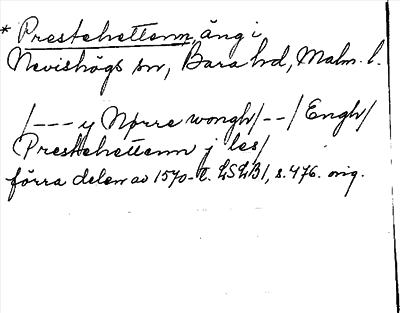 * Prestehettenn, äng i
Nevishögs sn, Bara hd, Malm. l.
/--- y Nørre wongh/--/Engh/
Prestehettenn j les/
förra delen av 1570-t. LSLB1, s. 476. orig.